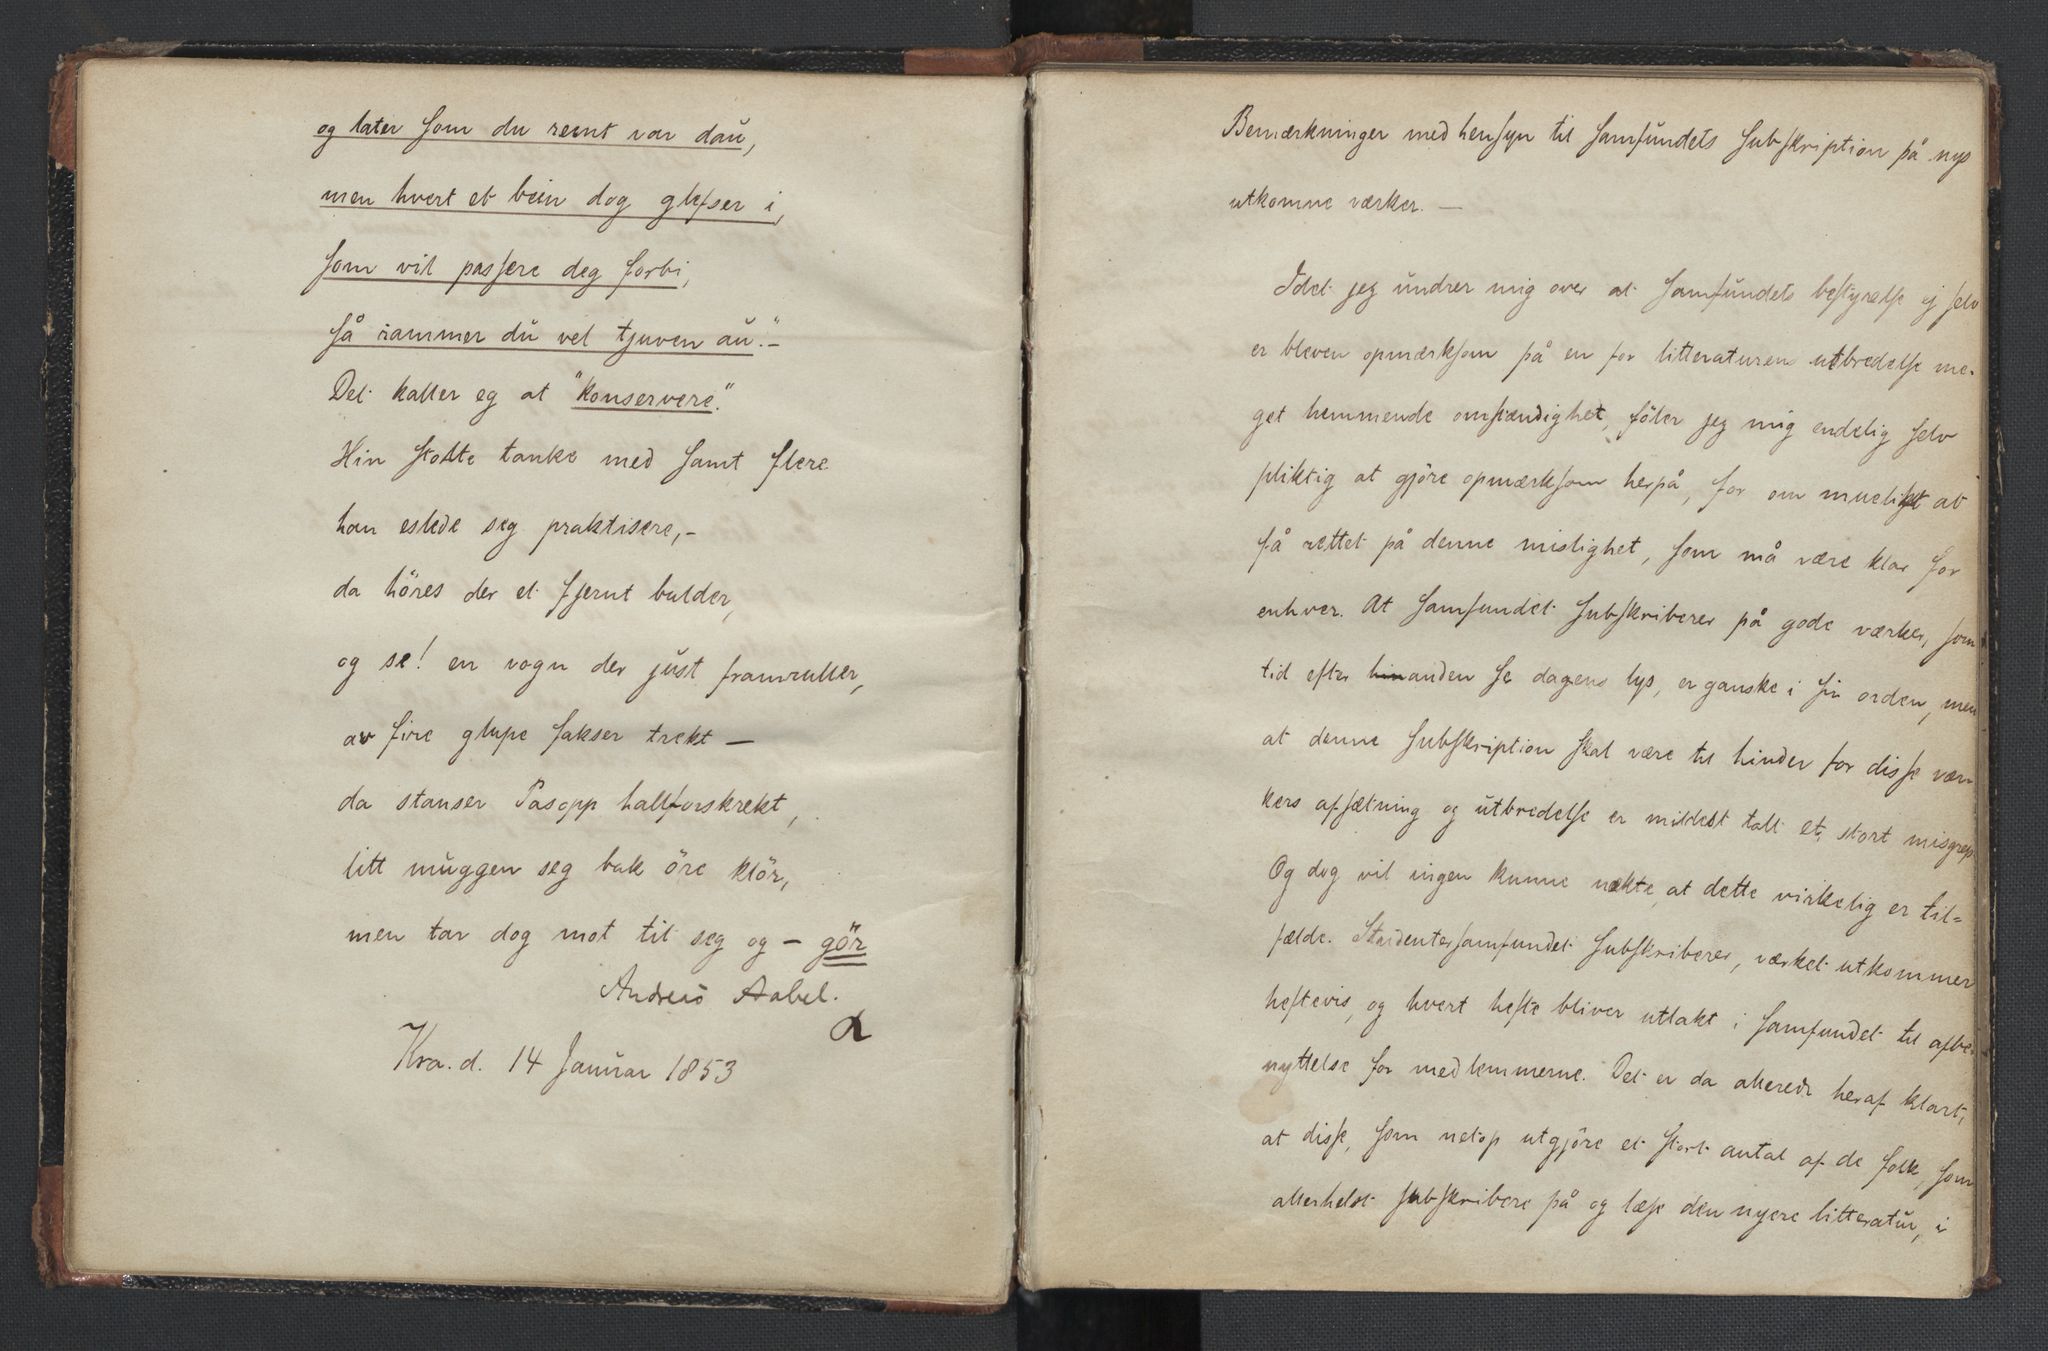 og later som du reint var dau,
men hvert et bein dog glefser i,
som vil passere deg forbi,
så rammer du vel tjuven au."-
Det kaller eg at "konservere."
Hin stolte tanke med samt flere
han eslede seg praktisere,-
da höres der et fjernt bulder,
og se! en vogn der just framruller,
av fire glupe fakser trekt —
da stanser Pasopp hallforskrekt,
litt muggen seg bak öre klör,
men tar dog mot til seg og - gör
Andreas Aabel.
Kra. d. 14 Januar 1853
Bemærkninger med hensyn til Samfundets Subskription på nys
utkomne værker. —
Idet jeg undrer mig over at Samfundets bestyrelse ej selv
er bleven opmærksom på en for litteraturens utbredelse me-
get hemmende omstændighet, föler jeg mig endelig selv
pliktig at gjöre opmærksom herpå, for om mueligt at
få rettet på denne mislighet, som må være klar for
enhver. At Samfundet subskriberer på gode værker, som
tid efter hinanden se dagens lys, er ganske i sin orden, men
at denne subskription skal være til hinder for disse vær-
kers afsætning og utbredelse er mildest talt et stort misgrep
Og dog vil ingen kunne nekte, at dette virkelig er til=
fælde. Studentersamfundet subskriberer, værket utkommer
heftevis, og hvert hefte bliver utlakt i Samfundet til afbe-
nyttelse for medlemmerne. Det er da allerede heraf klart,
at disse, som netop utgjöre et stort antal af de folk, som
allerhelst subskribere på og læse den nyere litteratur, i